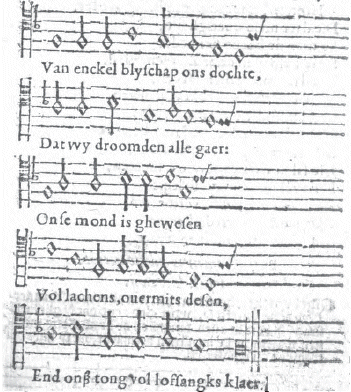 Van enckel blyſchap ons dochte,
Dat wy droomden alle gaer:
Onſe mond is gheweſen
Vol lachens, ouermits deſen,
End onß tong vol loffangks klaer.